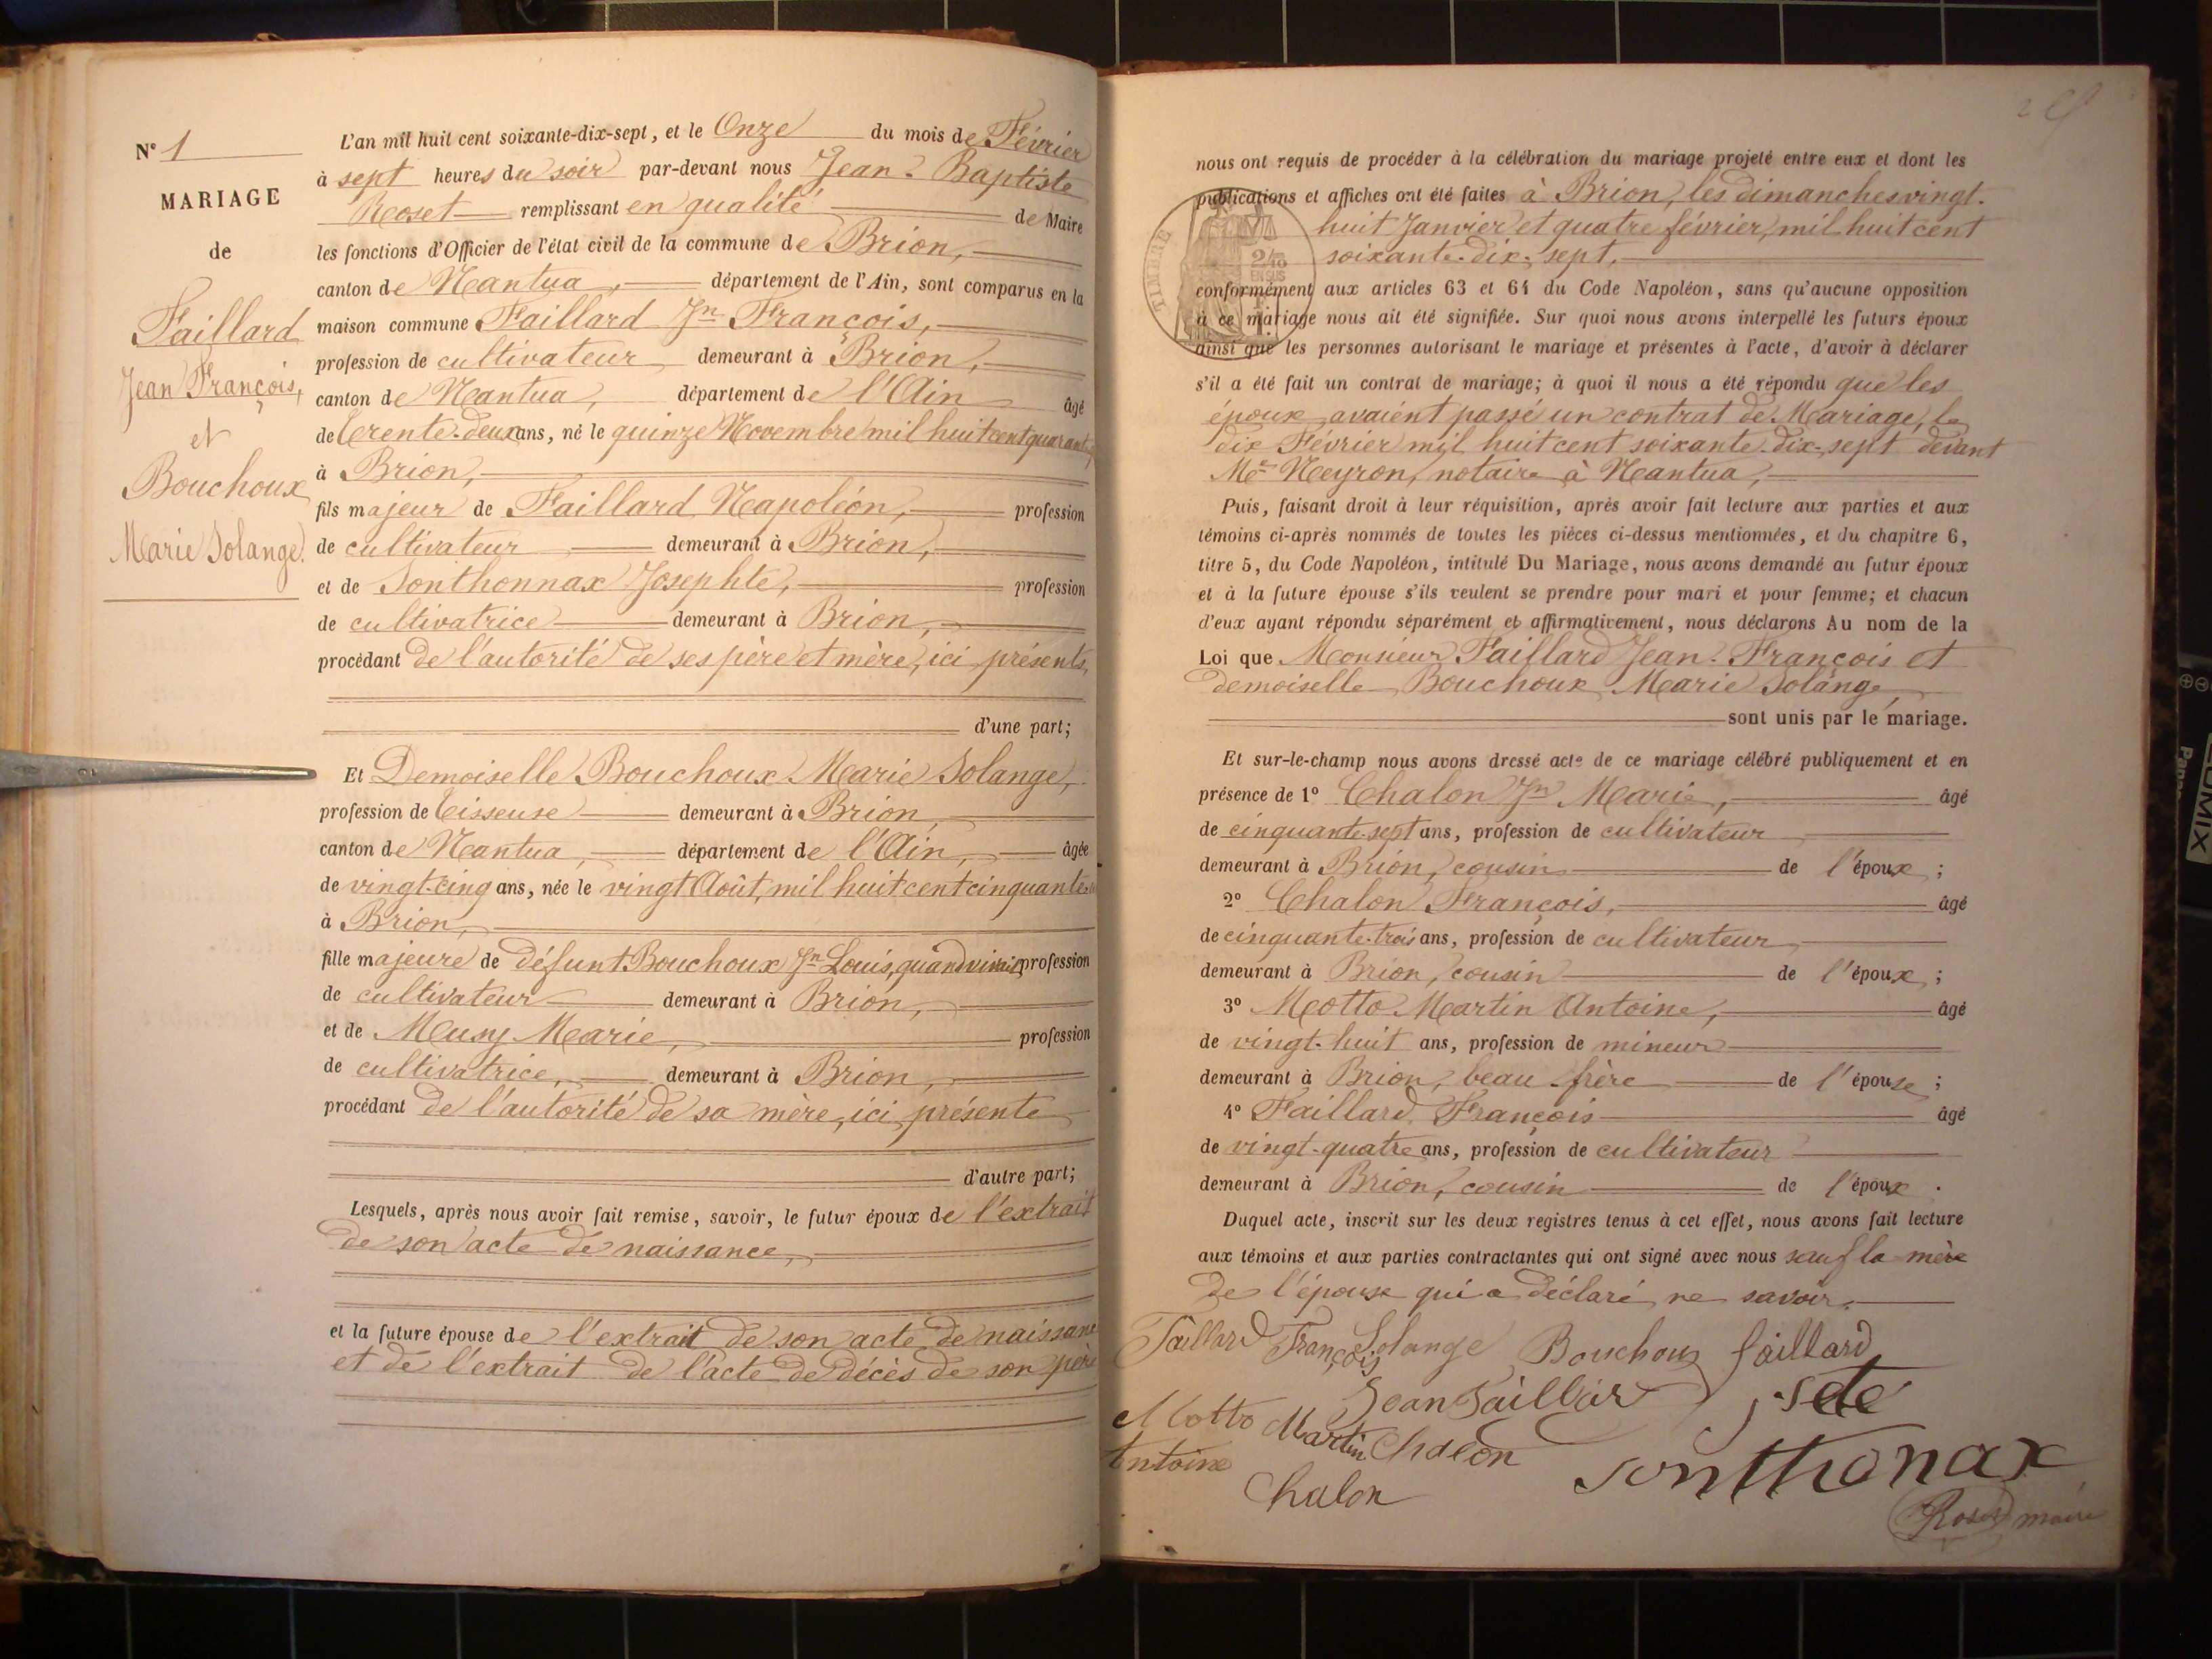 N° 1
MARIAGE
de
Faillard
Jean François,
et
Bouchoux
Marie Solange.
L'an mil huit cent soixante-dix-sept, et le Onze du mois de Février
à sept heures du soir par-devant nous Jean-Baptiste
Roset remplissant en qualité de Maire
les fonctions d'Officier de l'état civil de la commune de Brion,
canton de Nantua, département de l'Ain, sont comparus en la
maison commune Faillard Jn François,
profession de cultivateur demeurant à Brion,
canton de Nantua, département de l'Ain âgé
de trente-deux ans, né le quinze Novembre mil huit cent quarante
à Brion,
fils majeur de Faillard Napoléon, profession
de cultivateur demeurant à Brion,
et de Sonthonnax Josephte, profession
de cultivatrice demeurant à Brion,
procédant de l'autorité de ses père et mère, ici présents,
d'une part;
Et Demoiselle Bouchoux Marie Solange,
profession de tisseuse demeurant à Brion,
canton de Nantua, département de l'Ain, âgée
de vingt-cinq ans, née le vingt Août, mil huit cent cinquante
à Brion,
fille majeure de défunt Bouchoux Jn Louis, quand vivait profession
de cultivateur demeurant à Brion,
et de Musy Marie, profession
de cultivatrice, demeurant à Brion,
procédant de l'autorité de sa mère, ici présente
d'autre part;
Lesquels, après nous avoir fait remise, savoir, le futur époux de l'extrait
de son acte de naissance,
et la future épouse de l'extrait de son acte de naissance
et de l'extrait de l'acte de décès de son père
nous ont requis de procéder à la célébration du mariage projeté entre eux et dont les
publications et affiches ont été faites à Brion, les dimanches vingt-
huit Janvier et quatre février, mil huit cent
soixante-dix-sept,
TIMBRE
2/10
EN SUS
conformément aux articles 63 et 64 du Code Napoléon, sans qu'aucune opposition
à ce mariage nous ait été signifiée. Sur quoi nous avons interpellé les futurs époux
ainsi que les personnes autorisant le mariage et présentes à l'acte, d'avoir à déclarer
s'il a été fait un contrat de mariage; à quoi il nous a été répondu que les
époux avaient passé un contrat de Mariage, le
dix Février mil huit cent soixante-dix-sept devant
Me Neyron, notaire à Nantua,
Puis, faisant droit à leur réquisition, après avoir fait lecture aux parties et aux
témoins ci-après nommés de toutes les pièces ci-dessus mentionnées, et du chapitre 6,
titre 5, du Code Napoléon, intitulé Du Mariage, nous avons demandé au futur époux
et à la future épouse s'ils veulent se prendre pour mari et pour femme; et chacun
d'eux ayant répondu séparément et affirmativement, nous déclarons Au nom de la
Loi que Monsieur Faillard Jean-François et
demoiselle Bouchoux Marie Solange
sont unis par le mariage.
Et sur-le-champ nous avons dressé acte de ce mariage célébré publiquement et en
présence de 1° Chalon Jn Marie, âgé
de cinquante-sept ans, profession de cultivateur
demeurant à Brion, cousin de l'époux ;
2° Chalon François, âgé
de cinquante-trois ans, profession de cultivateur
demeurant à Brion, cousin de l'époux ;
3° Motto Martin Antoine, âgé
de vingt-huit ans, profession de mineur
demeurant à Brion, beau-frère de l'épouse ;
4° Faillard François âgé
de vingt-quatre ans, profession de cultivateur
demeurant à Brion, cousin de l'époux .
Duquel acte, inscrit sur les deux registres tenus à cet effet, nous avons fait lecture
aux témoins et aux parties contractantes qui ont signé avec nous sauf la mère
de l'épouse qui a déclaré ne savoir.
Faillard François Solange Bouchoux faillard
Jean Faillard
Motto Martin Chalon
Antoine
Chalon
Sonthonax
Roset maire
LUMIX